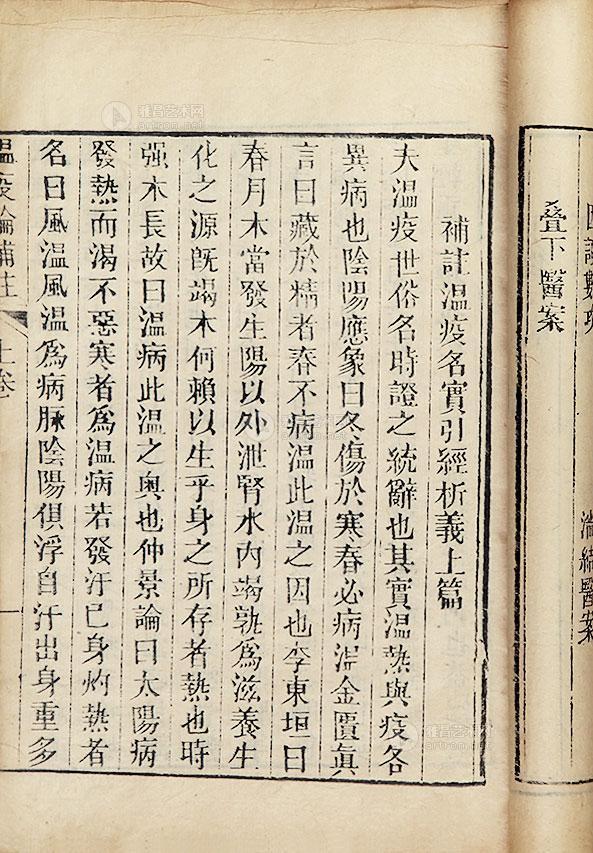 叠下醫案
補註溫疫名實引經析義上篇
夫溫疫世俗名時證之統辭也其實溫熱與疫各
異病也陰陽應象曰冬傷於寒春必病溫金匱眞
言曰藏於精者春不病溫此溫之因也李東垣曰
春月木當發生陽以外泄腎水內竭孰爲滋養生
化之源旣竭木何賴以生乎身之所存者熱也時
强木長故曰溫病此溫之奧也仲景論曰太陽病
發熱而渴不惡寒者爲溫病若發汗已身灼熱者
名曰風溫風溫爲病脉陰陽俱浮自汗出身重多
溫疫論補註 上卷 一
雅昌艺术网
artron.net